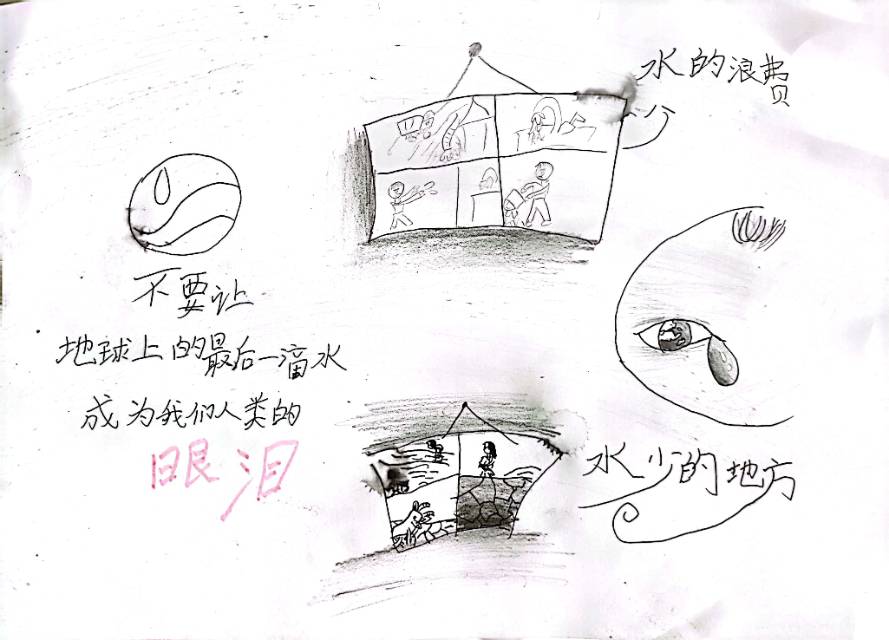 水的浪费
不要让
地球上的最后一滴水
成为我们人类的
眼泪
水少的地方